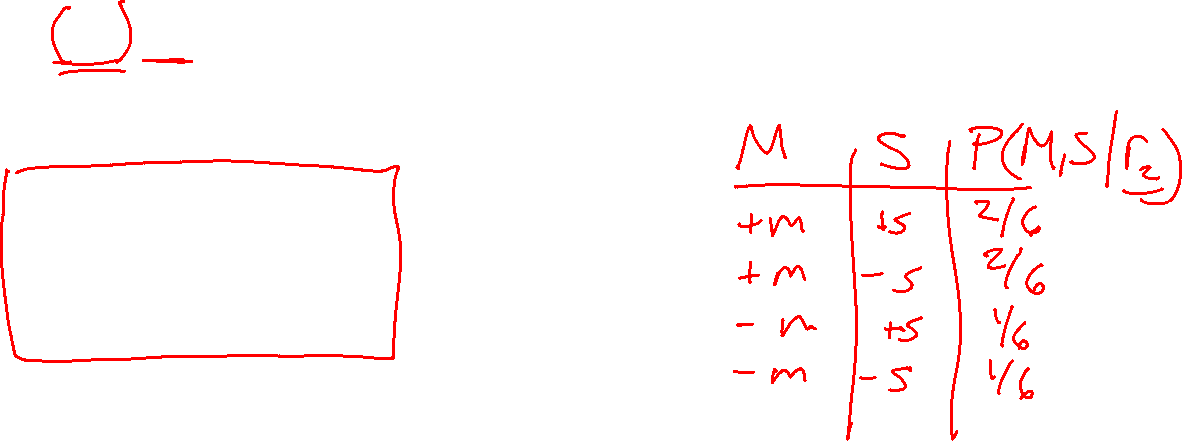 M S P(M,S|r₂)
+m +s 2/6
+m -s 2/6
-m +s 1/6
-m -s 1/6